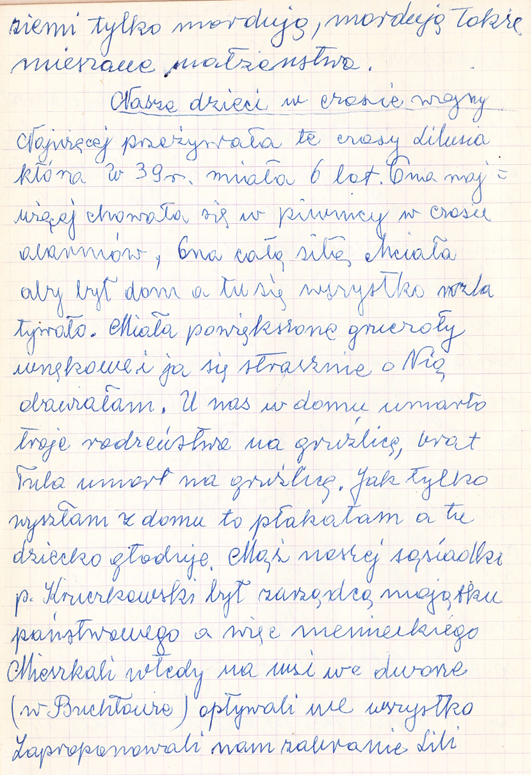 ziemi tylko mordują, mordują także
mieszane małżeństwa.
Nasze dzieci w czasie wojny
Najwięcej przeżywała te czasy Lilusia
która w 39r. miała 6 lat. Ona naj=
więcej chowała się w piwnicy w czasie
alarmów, Ona całą siłą chciała
aby był dom a tu się wszystko rozla
tywało. Miała powiększone gruczoły
wnękowe i ja się strasznie o Nią
drżałam. U nas w domu umarło
troje rodzeństwa na gruźlicę, brat
Tula umarł na gruźlicę. Jak tylko
wyszłam z domu to płakałam a tu
dziecko głoduje. Mąż naszej sąsiadki
p. Kruczkowski był zarządcą majątku
państwowego a więc niemieckiego
Mieszkali wtedy na wsi we dworze
(w Buchtowie) opływali we wszystko
Zaproponowali nam zabranie Lili